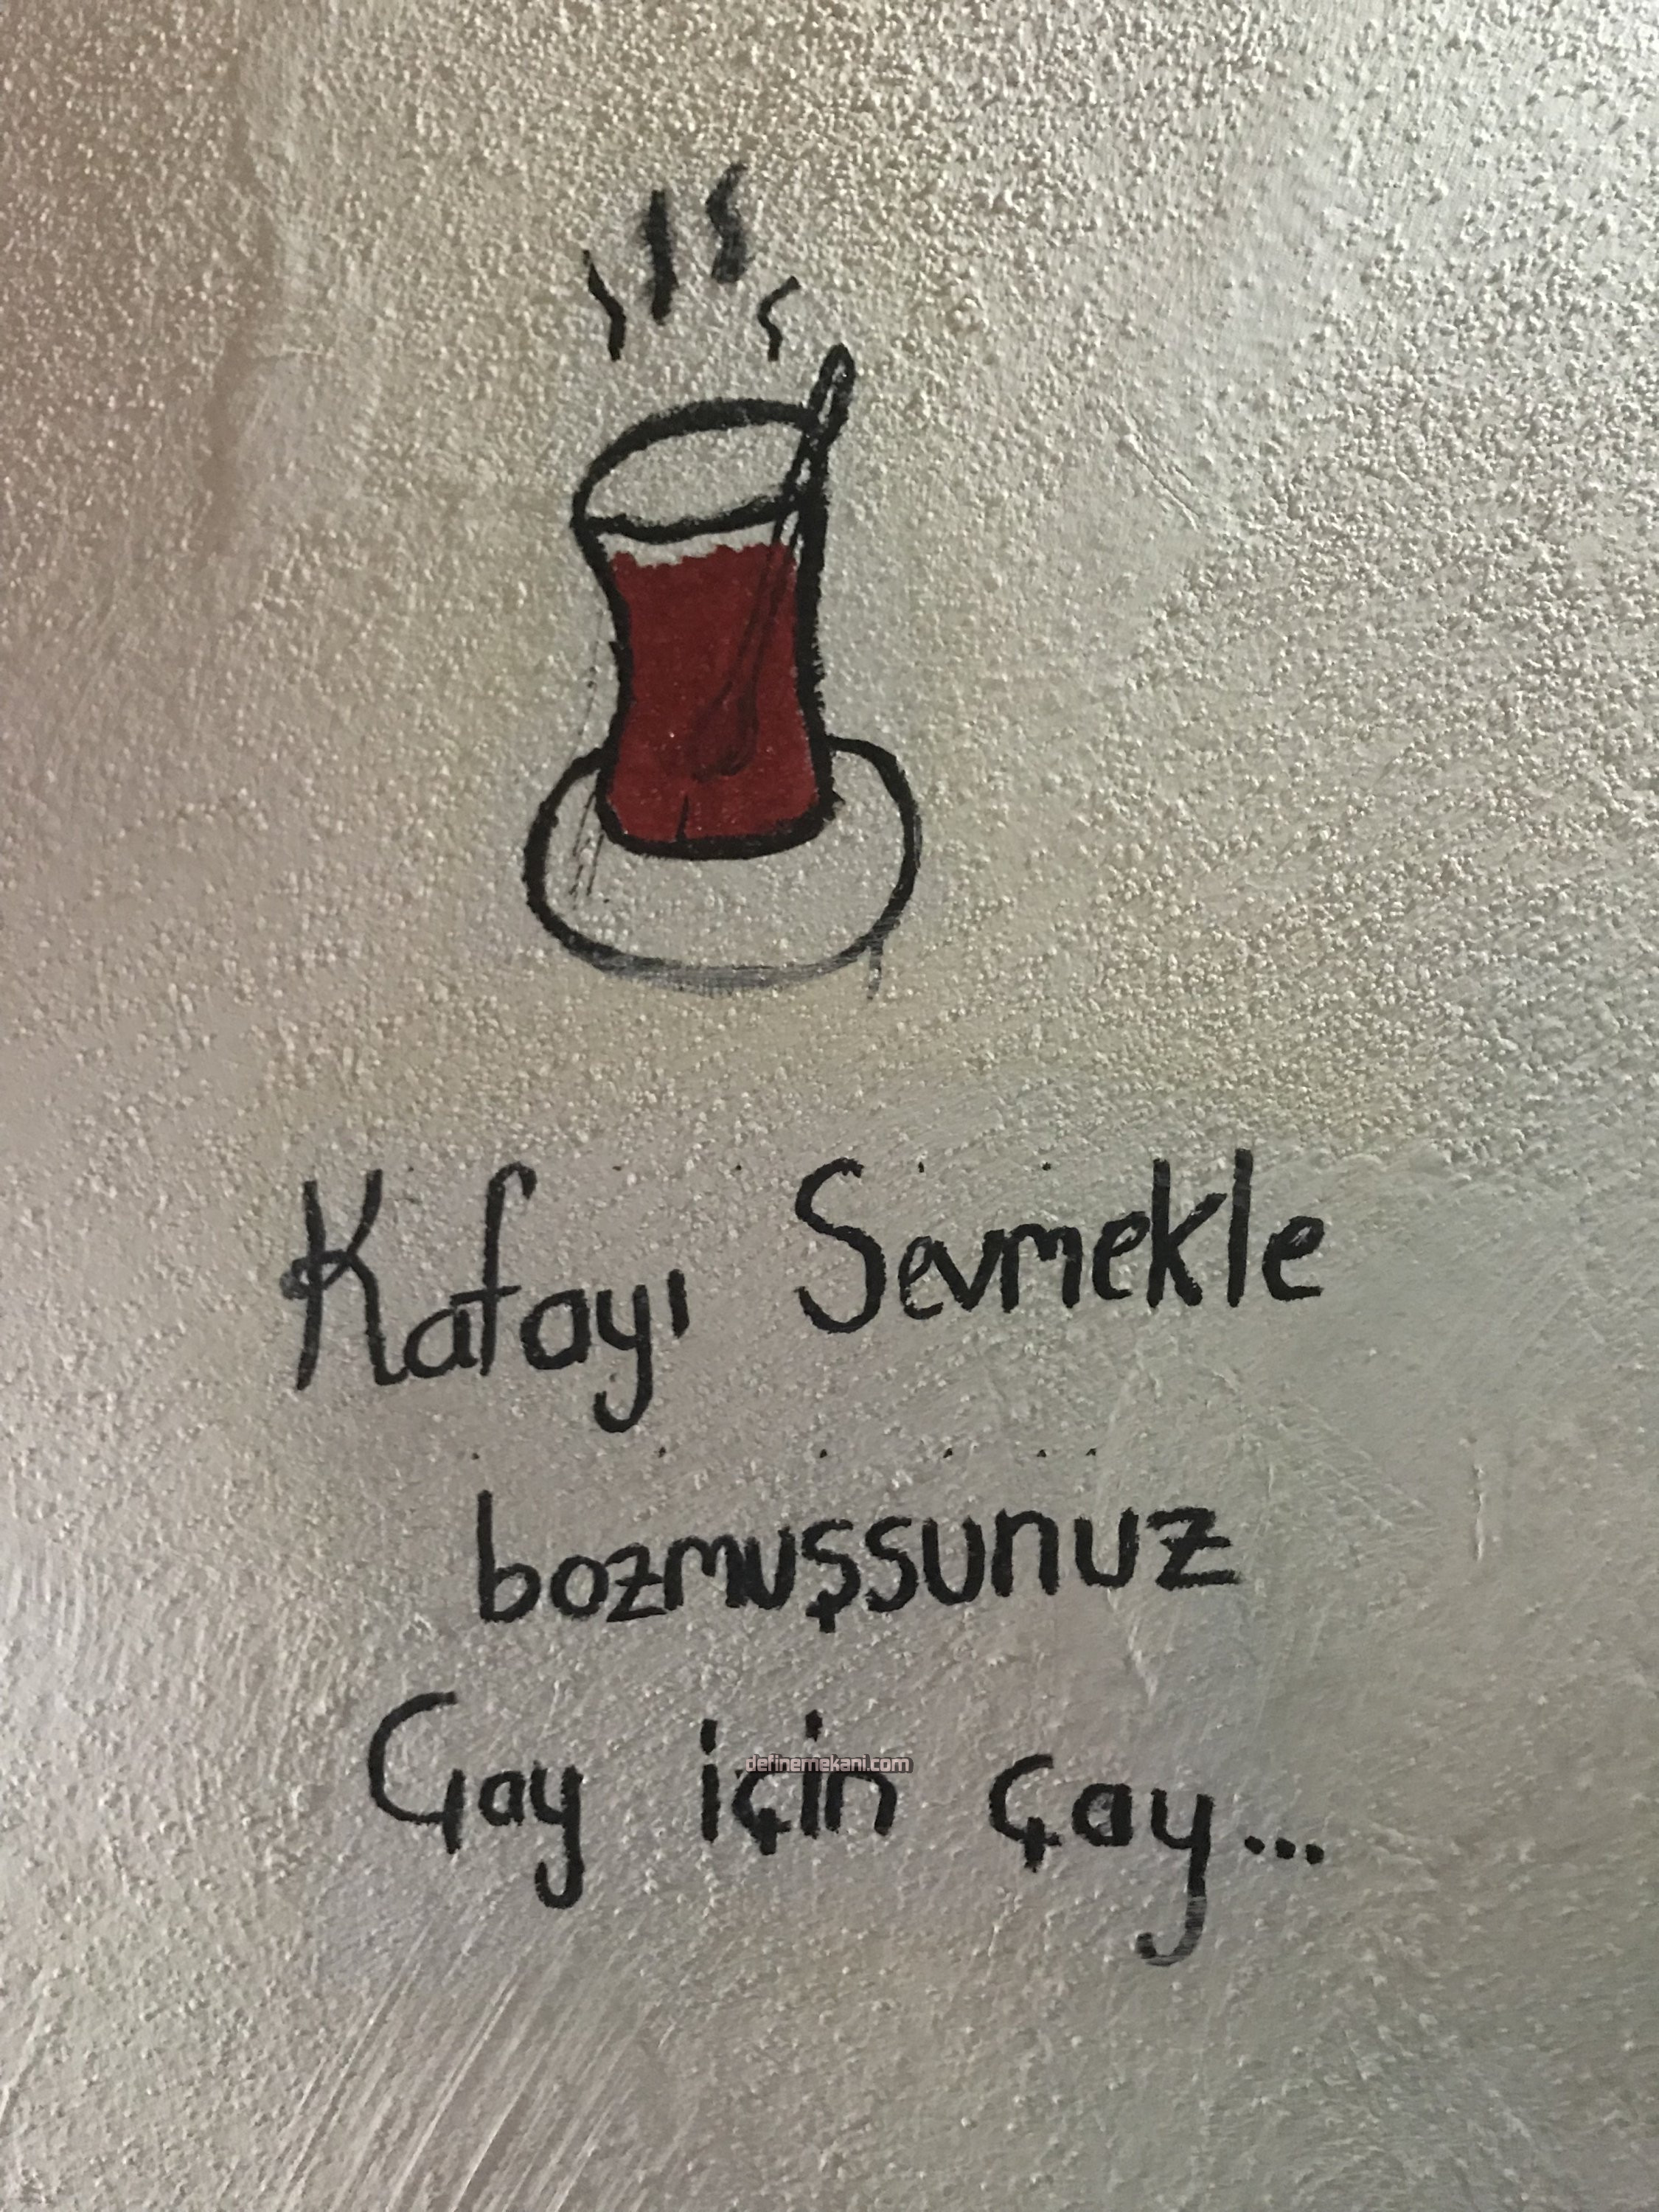 Kafayı Sevmekle
bozmuşsunuz
Çay için çay...
definemekani.com